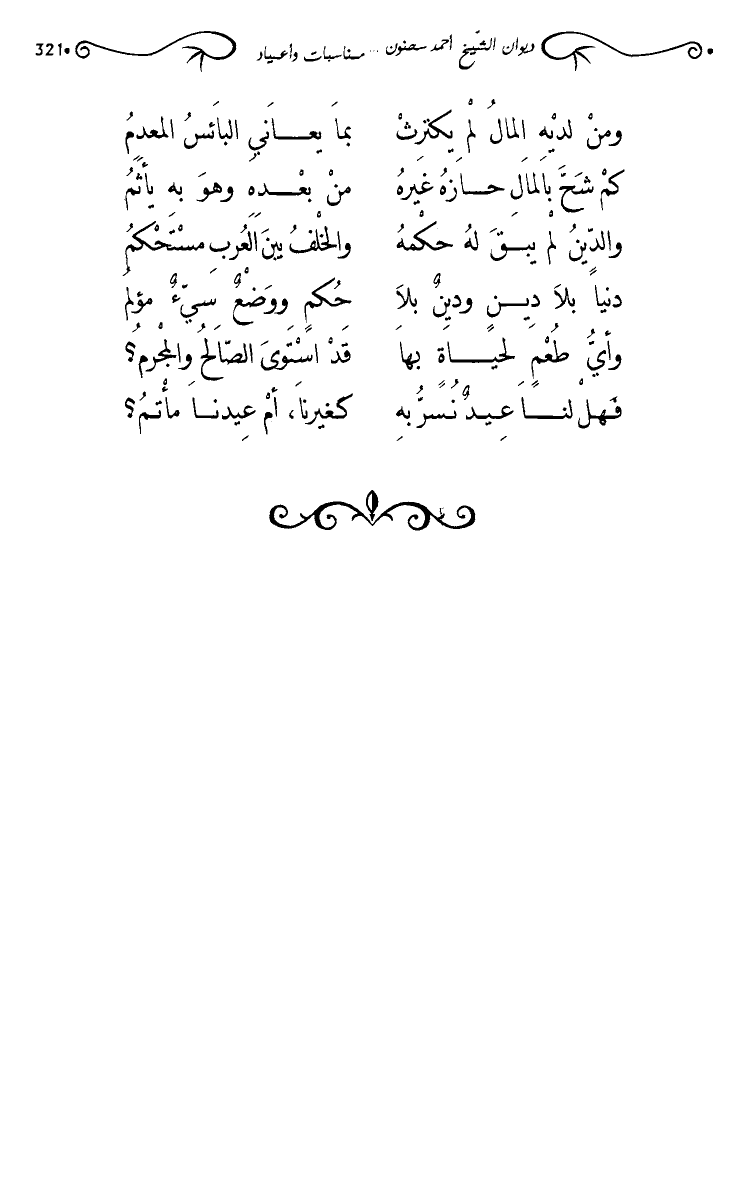 ديوان الشّيخ أحمد سحنون ... مناسبات وأعياد 321
ومنْ لديْهِ المالُ لمْ يكترِثْ بماَ يعـــانَي البَائسُ المعدِمُ
كمْ شَحَّ بِالمَالِ حــازَهُ غَيرهُ منْ بعْــدِهِ وهوَ بهِ يأثَمُ
والدِّينُ لمْ يبــقَ لهُ حكْمهُ والخلْفُ بينَ العُربِ مسْتَحْكمُ
دنياً بلاَ دِيــنٍ ودينٌ بلاَ حُكمٍ ووَضْعٌ سَيّءٌ مؤلمُ
وأيُّ طُعْمٍ لحيَـــاةٍ بهاَ قَدْ اسْتَوىَ الصّالحُ والمجْرمُ؟
فَهلْ لنـــاَ عِيـدٌ نُسَرُّ بهِ كغيرنَا، أمْ عِيدنــاَ مأْتمُ؟